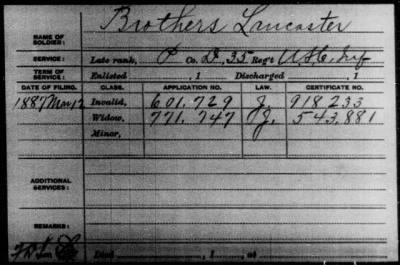 Brothers Lancaster
NAME OF SOLDIER:
SERVICE: Late rank, P Co. D, 35 Reg't U.S.C. Inf
TERM OF SERVICE: Enlisted , 1 Discharged , 1
DATE OF FILING. CLASS. APPLICATION NO. LAW. CERTIFICATE NO.
1887 Mar 12 Invalid, 601.729 J. 918 233
Widow, 771.747 J. 543.881
Minor,
ADDITIONAL SERVICES:
REMARKS:
Died , 1 , at